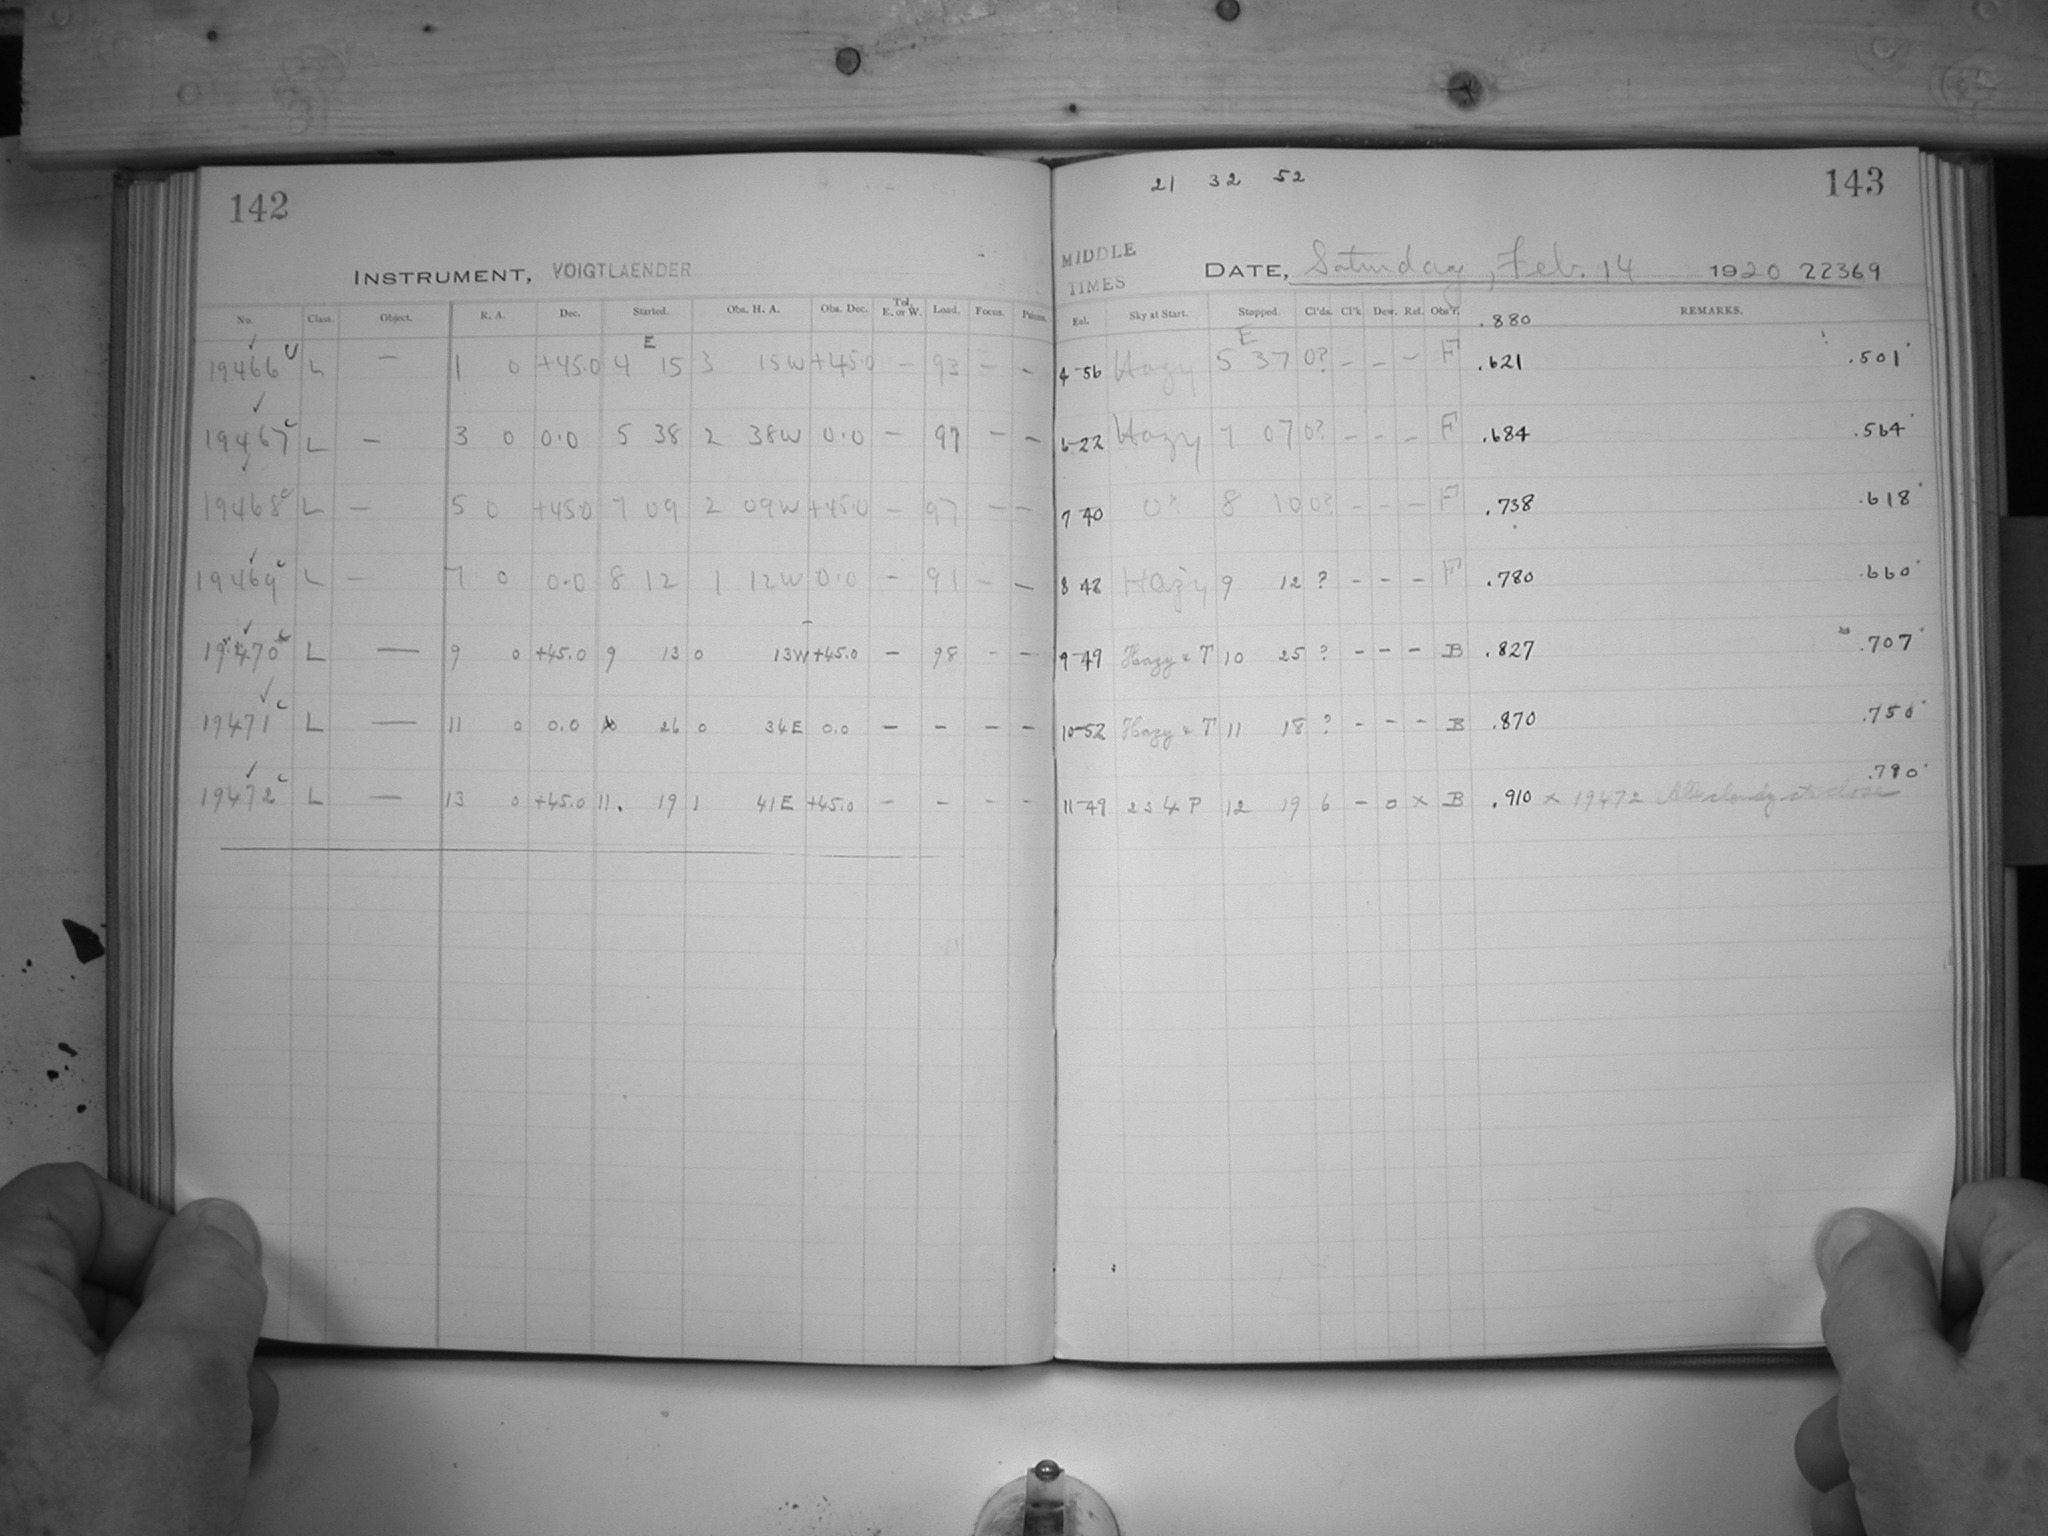 142
INSTRUMENT, VOIGTLAENDER
No. Class. Object. R. A. Dec. Started. Obs. H. A. Obs. Dec. Tel. E. or W. Load. Focus.
E
19466 L — 1 0 +45.0 4 15 3 15W +45.0 — 93 — —
19467 L — 3 0 0.0 5 38 2 38W 0.0 — 97 — —
19468 L — 5 0 +45.0 7 09 2 09W +45.0 — 97 — —
19469 L — 7 0 0.0 8 12 1 12W 0.0 — 91 — —
19470 L — 9 0 +45.0 9 13 0 13W +45.0 — 98 — —
19471 L — 11 0 0.0 10 26 0 34E 0.0 — — — —
19472 L — 13 0 +45.0 11. 19 1 41E +45.0 — — — —
21 32 52
143
MIDDLE
TIMES
DATE, Saturday, Feb. 14 1920 22369
Sky at Start. Stopped. Cl'ds. Cl'k Dew. Ret. Obs'r. .880 REMARKS.
E
4-56 Hazy 5 37 0? — — — F .621 .501
6-22 Hazy 7 07 0? — — — F .684 .564
7 40 0? 8 10 0? — — — F .738 .618
8 42 Hazy 9 12 ? — — — F .780 .660
9-49 Hazy & T 10 25 ? — — — B .827 .707
10-52 Hazy & T 11 18 ? — — — B .870 .750
.790
11-49 2 3 4 P 12 19 6 — 0 x B .910 x 19472 All cloudy at close